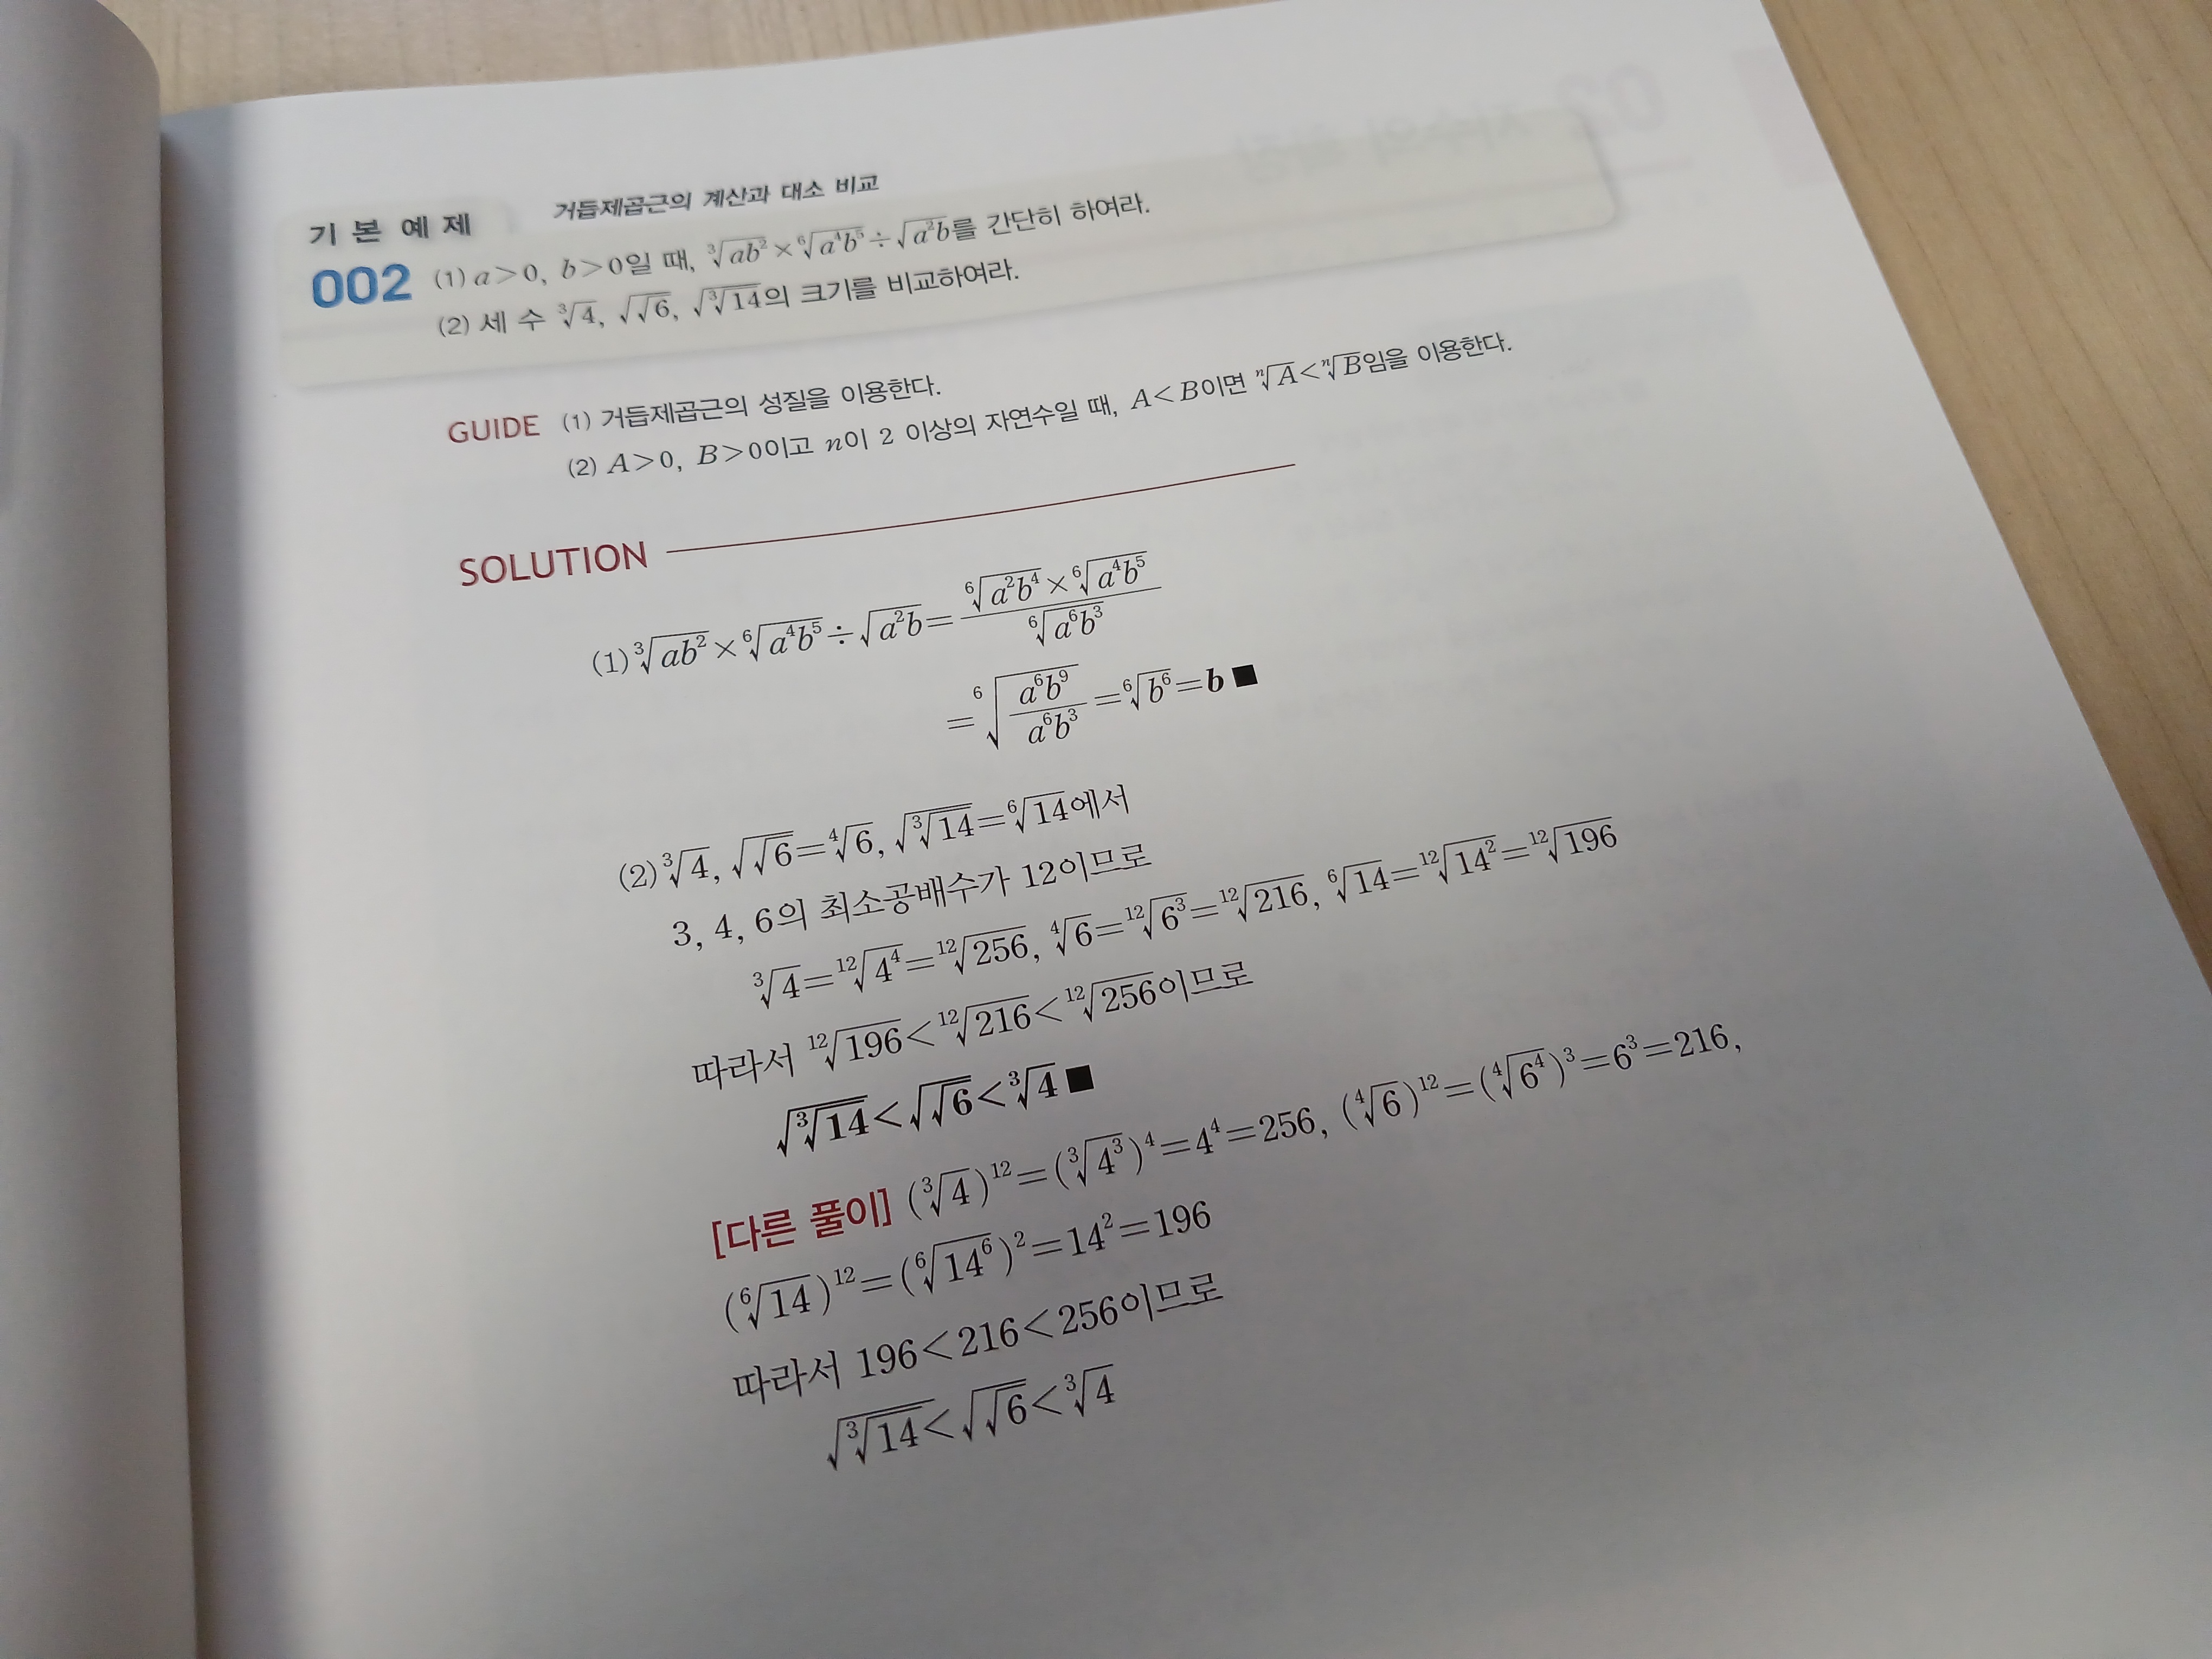 기본예제 거듭제곱근의 계산과 대소 비교
002 (1) a>0, b>0일 때, ∛(ab²)×⁶√(a⁴b⁵)÷√(a²b)를 간단히 하여라.
(2) 세 수 ∛4, √√6, √∛14의 크기를 비교하여라.
GUIDE (1) 거듭제곱근의 성질을 이용한다.
(2) A>0, B>0이고 n이 2 이상의 자연수일 때, A<B이면 ⁿ√A<ⁿ√B임을 이용한다.
SOLUTION
(1) ∛(ab²)×⁶√(a⁴b⁵)÷√(a²b)=(⁶√(a²b⁴)×⁶√(a⁴b⁵))/⁶√(a⁶b³)
=⁶√(a⁶b⁹/a⁶b³)=⁶√(b⁶)=b ■
(2) ∛4, √√6=⁴√6, √∛14=⁶√14에서
3, 4, 6의 최소공배수가 12이므로
∛4=¹²√(4⁴)=¹²√256, ⁴√6=¹²√(6³)=¹²√216, ⁶√14=¹²√(14²)=¹²√196
따라서 ¹²√196<¹²√216<¹²√256이므로
√∛14<√√6<∛4 ■
[다른 풀이] (∛4)¹²=(∛(4³))⁴=4⁴=256, (⁴√6)¹²=(⁴√(6⁴))³=6³=216,
(⁶√14)¹²=(⁶√(14⁶))²=14²=196
따라서 196<216<256이므로
√∛14<√√6<∛4